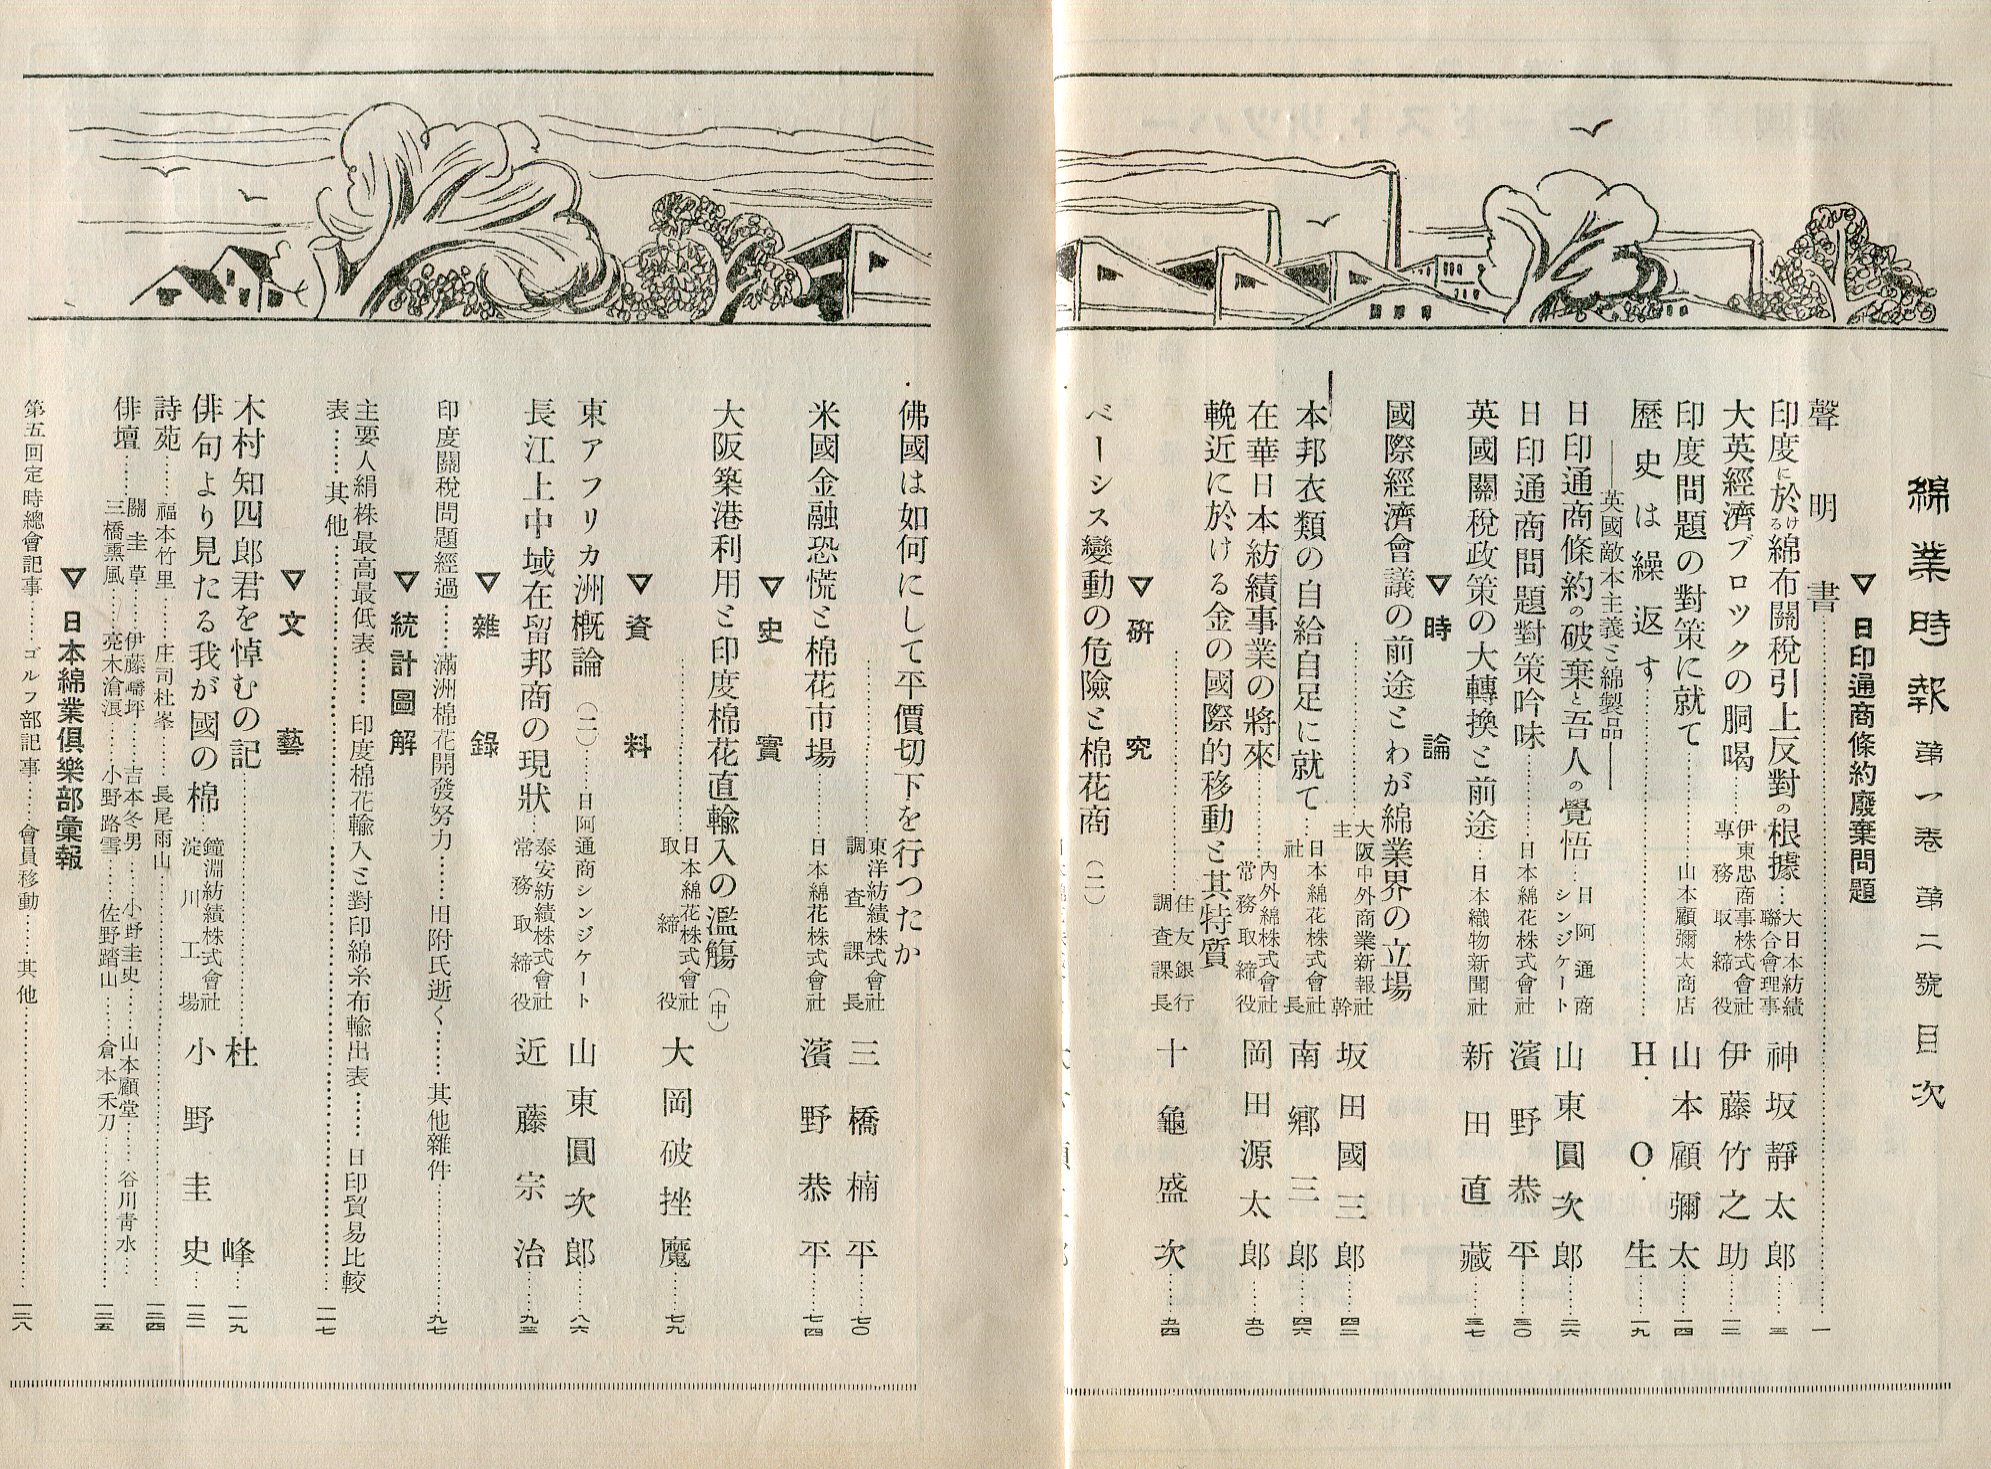 綿業時報 第一卷 第二號 目次
▽日印通商條約廢棄問題
聲明書……一
印度に於ける綿布關稅引上反對の根據…大日本紡績聯合會理事 神坂靜太郎……三
大英經濟ブロックの胴喝…伊東忠商事株式會社專務取締役 伊藤竹之助……一二
印度問題の對策に就て……山本顧彌太商店 山本顧彌太……一四
歷史は繰返す……H.O.生……一九
――英國敵本主義と綿製品――
日印通商條約の破棄と吾人の覺悟…日阿通商シンジケート 山東圓次郎……二六
日印通商問題對策吟味……日本綿花株式會社 濱野恭平……三〇
英國關稅政策の大轉換と前途…日本織物新聞社 新田直藏……三七
▽時論
國際經濟會議の前途とわが綿業界の立場
……大阪中外商業新報社主幹 坂田國三郎……四二
本邦衣類の自給自足に就て…日本綿花株式會社社長 南鄉三郎……四六
在華日本紡績事業の將來……內外綿株式會社常務取締役 岡田源太郎……五〇
輓近に於ける金の國際的移動と其特質
……住友銀行調査課長 十龜盛次……五四
▽硏究
ベーシス變動の危險と棉花商(二)
佛國は如何にして平價切下を行つたか
……東洋紡績株式會社調査課長 三橋楠平……七〇
米國金融恐慌と棉花市場……日本綿花株式會社 濱野恭平……七四
▽史實
大阪築港利用と印度棉花直輸入の濫觴(中)
……日本綿花株式會社取締役 大岡破挫魔……七九
▽資料
東アフリカ洲槪論(二)……日阿通商シンジケート 山東圓次郎……八六
長江上中域在留邦商の現狀…泰安紡績株式會社常務取締役 近藤宗治……九三
▽雜錄
印度關稅問題經過……滿洲棉花開發努力……田附氏逝く……其他雜件……九七
▽統計圖解
主要人絹株最高最低表……印度棉花輸入と對印綿糸布輸出表……日印貿易比較
表……其他……一一七
▽文藝
木村知四郎君を悼むの記……杜峰……一一九
俳句より見たる我が國の棉…鐘淵紡績株式會社淀川工場 小野圭史……一二一
詩苑……福本竹里……庄司杜峯……長尾雨山……一二四
俳壇……關圭草……伊藤疇坪……吉本冬男……小野圭史……山本顧堂……谷川靑水…
三橋熏風……亮木滄浪……小野路雪……佐野踏山……倉本禾刀……一二五
▽日本綿業俱樂部彙報
第五回定時總會記事……ゴルフ部記事……會員移動……其他……一二八